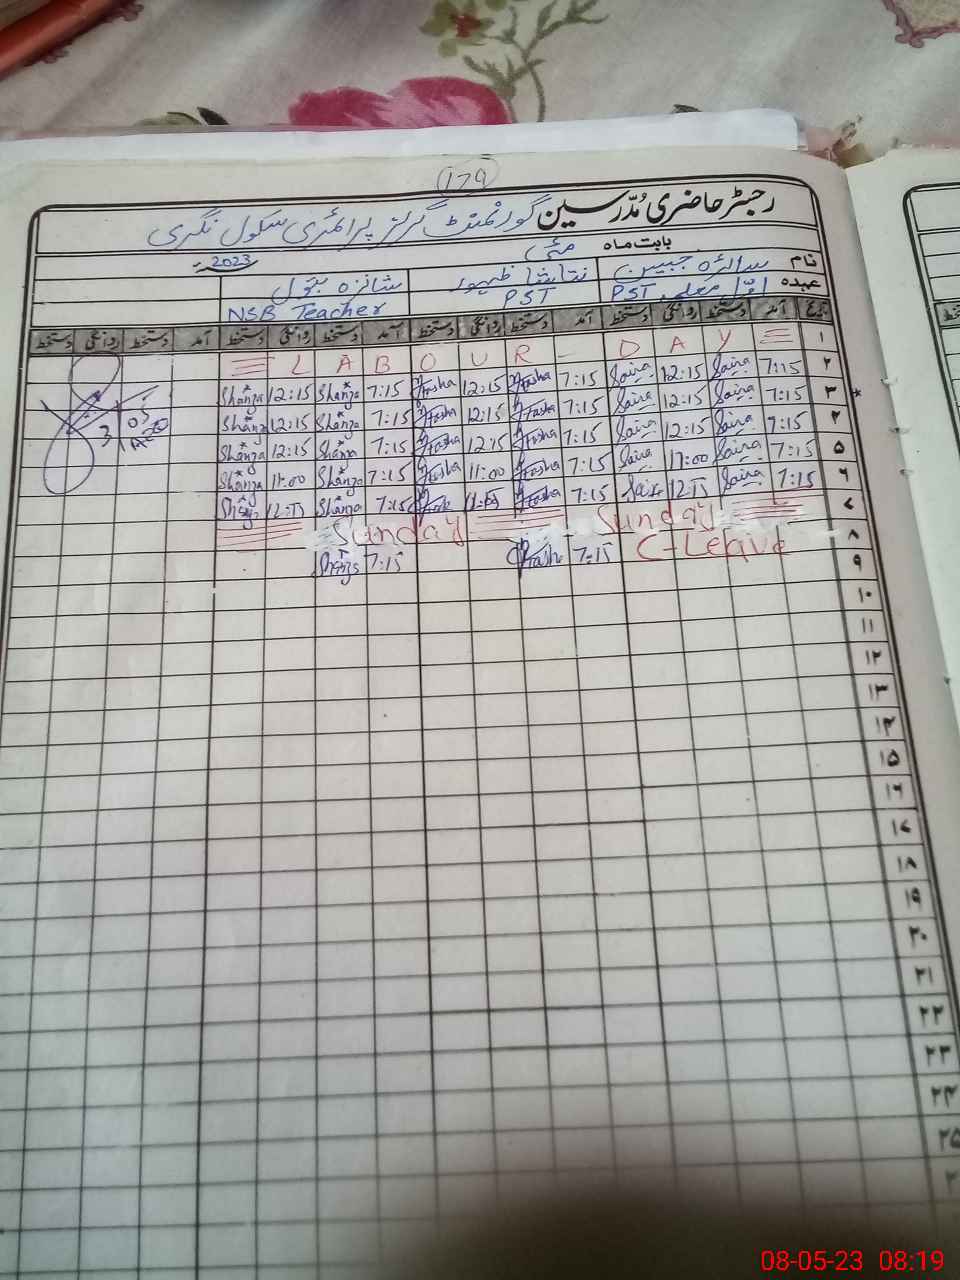 179
رجسٹر حاضری مُدّرسین گورنمنٹ گرلز پرائمری سکول نگری
بابت ماہ مئی 2023ء
نام سائرہ جبیں نتاشا ظہور شانزہ بتول
عہدہ اوّل معلمہ PST PST NSB Teacher
تاریخ آمد دستخط روانگی دستخط آمد دستخط روانگی دستخط آمد دستخط روانگی دستخط آمد دستخط روانگی دستخط
۱ LABOUR - DAY
۲ 7:15 Saira 12:15 Saira 7:15 Ntasha 12:15 Ntasha 7:15 Shanza 12:15 Shanza
۳ 7:15 Saira 12:15 Saira 7:15 Ntasha 12:15 Ntasha 7:15 Shanza 12:15 Shanza
۴ 7:15 Saira 12:15 Saira 7:15 Ntasha 12:15 Ntasha 7:15 Shanza 12:15 Shanza
۵ 7:15 Saira 11:00 Saira 7:15 Ntasha 11:00 Ntasha 7:15 Shanza 11:00 Shanza
۶ 7:15 Saira 12:15 Saira 7:15 Ntasha 7:15 Shanza 12:15 Shanza
۷ Sunday Sunday
۸ C-Leave 7:15 Ntasha 7:15 Shanza
۹
۱۰
۱۱
۱۲
۱۳
۱۴
۱۵
۱۶
۱۷
۱۸
۱۹
۲۰
۲۱
۲۲
۲۳
۲۴
۲۵
08-05-23 08:19